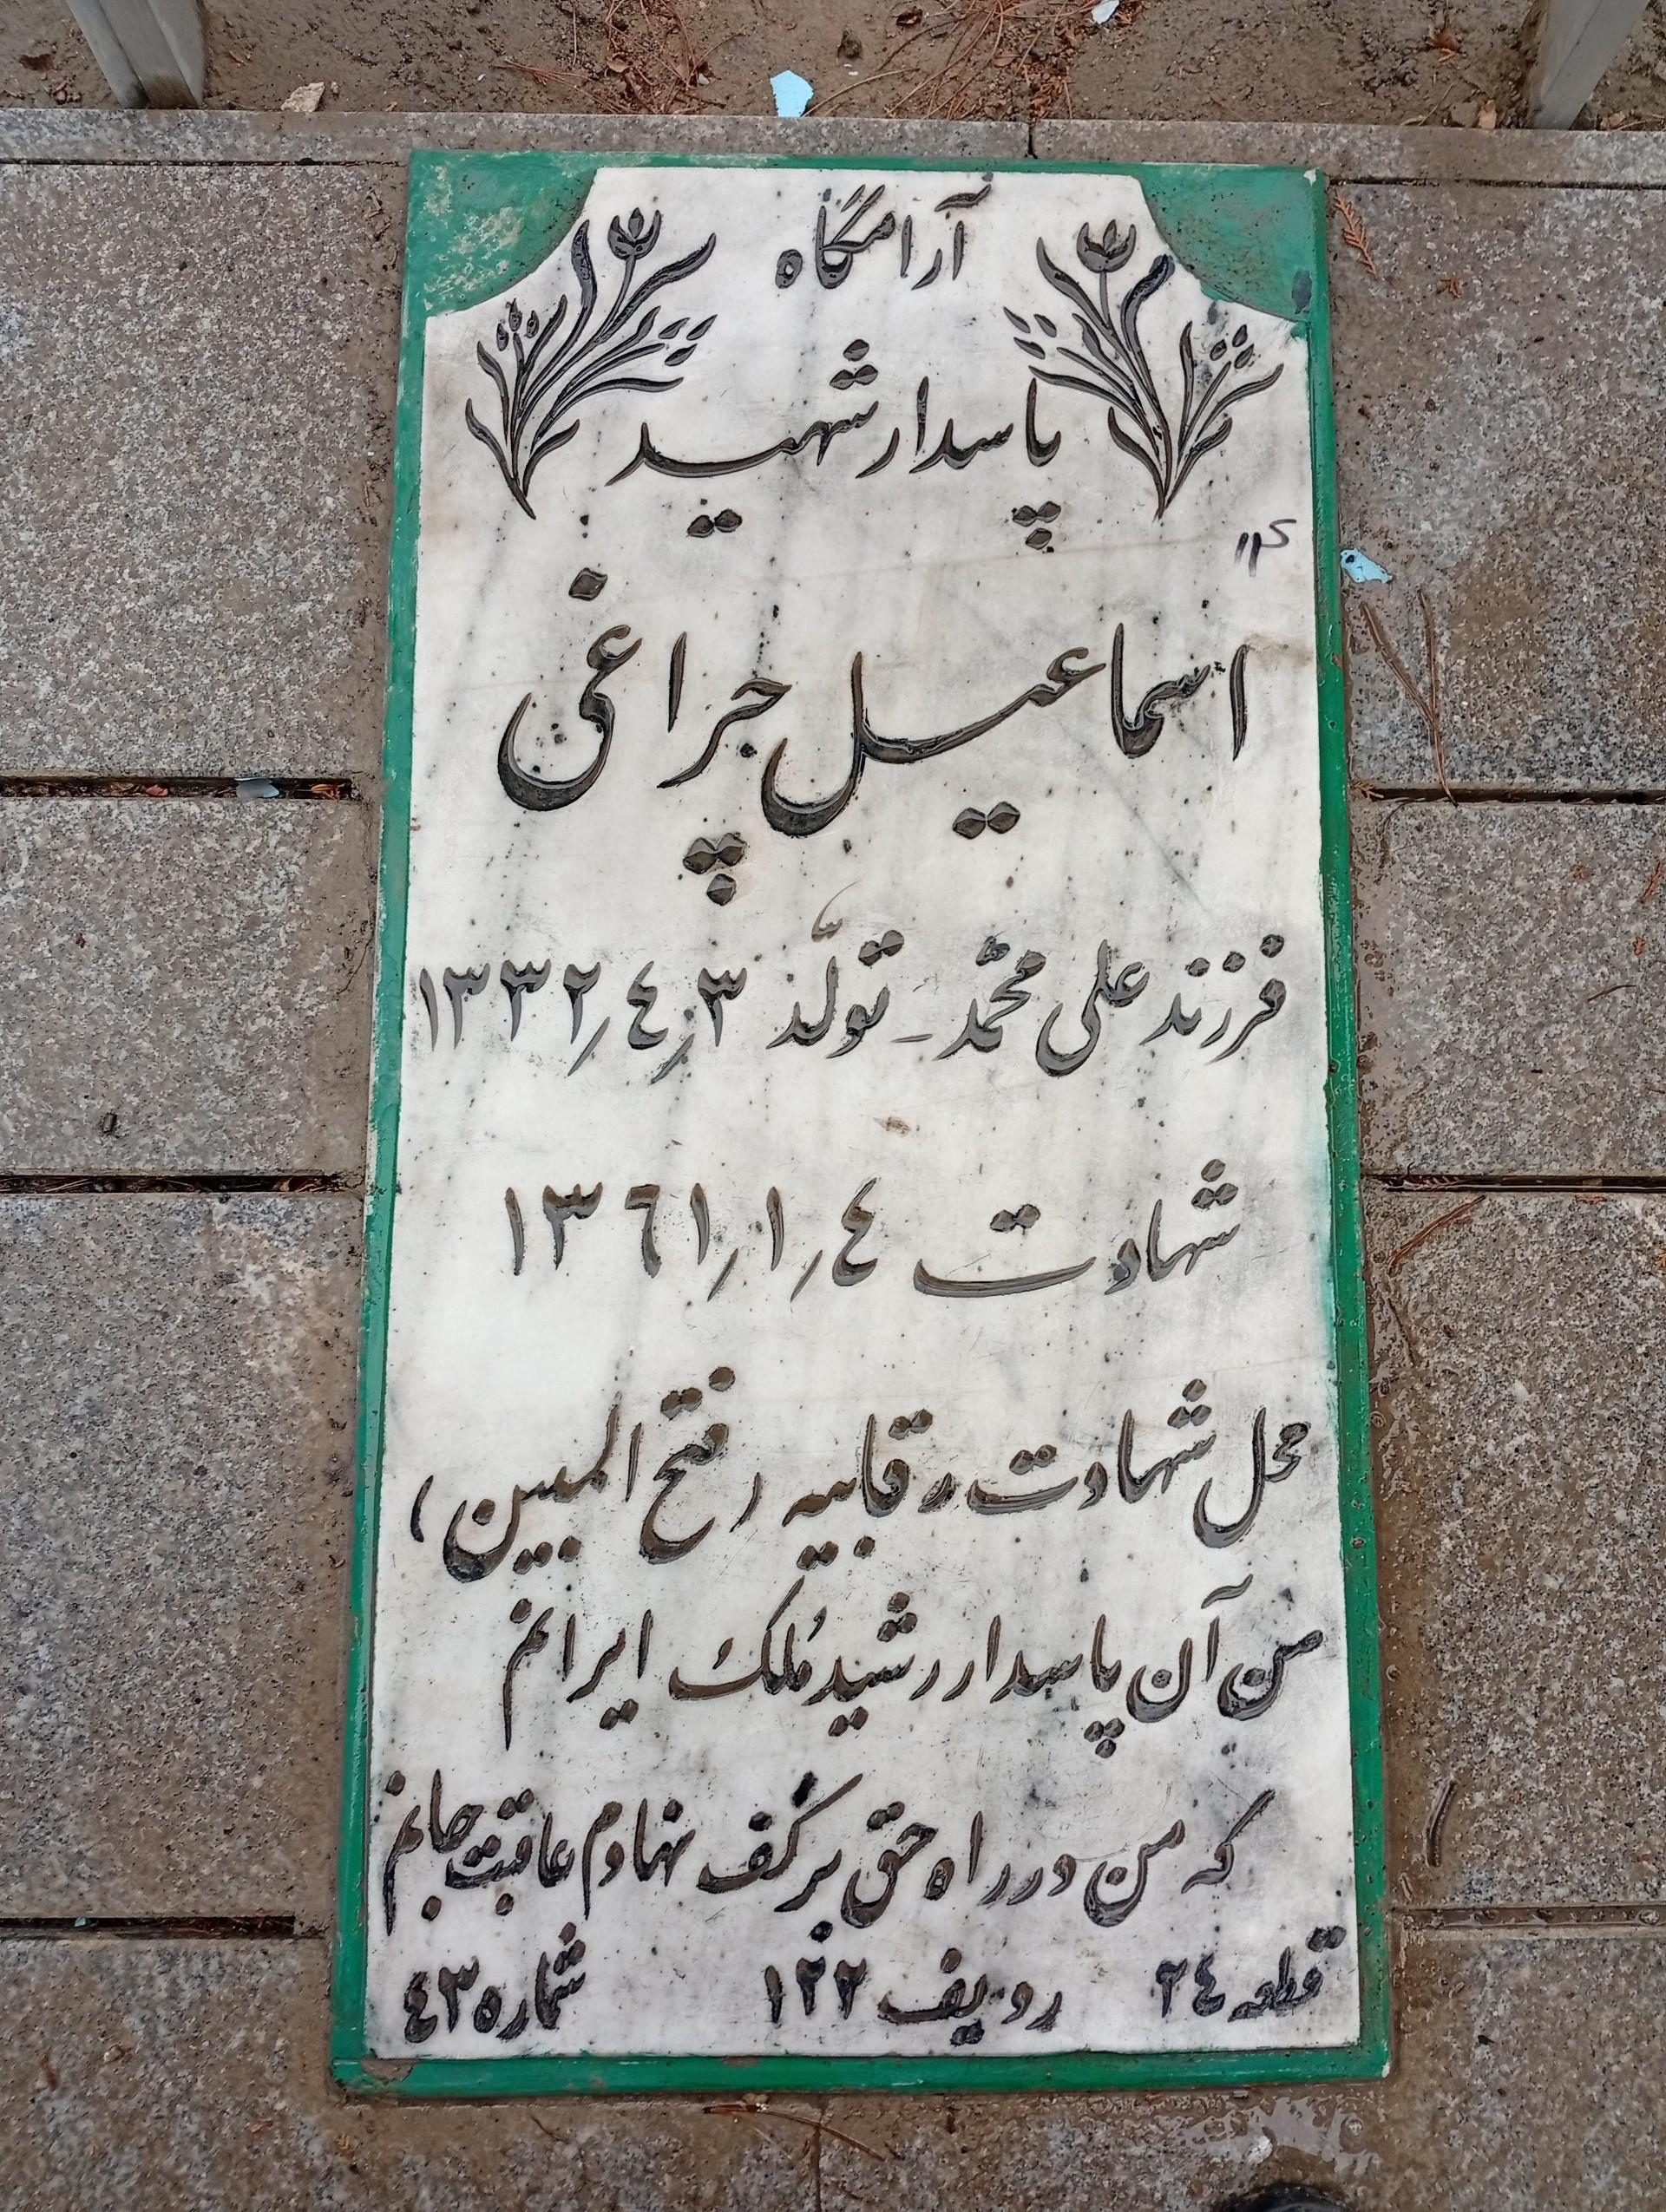 آرامگاه
پاسدار شهید
۱۱۴
اسماعیل چراغی
فرزند علی محمّد - تولّد ۳ر٤ر۱۳۳۲
شهادت ٤ر۱ر۱۳٦۱
محل شهادت رقابیه (فتح المبین)
من آن پاسدار رشید مُلک ایرانم
که من در راه حق بر کف نهادم عاقبت جانم
قطعه ۲٤ ردیف ۱۲۲ شماره ٤۳